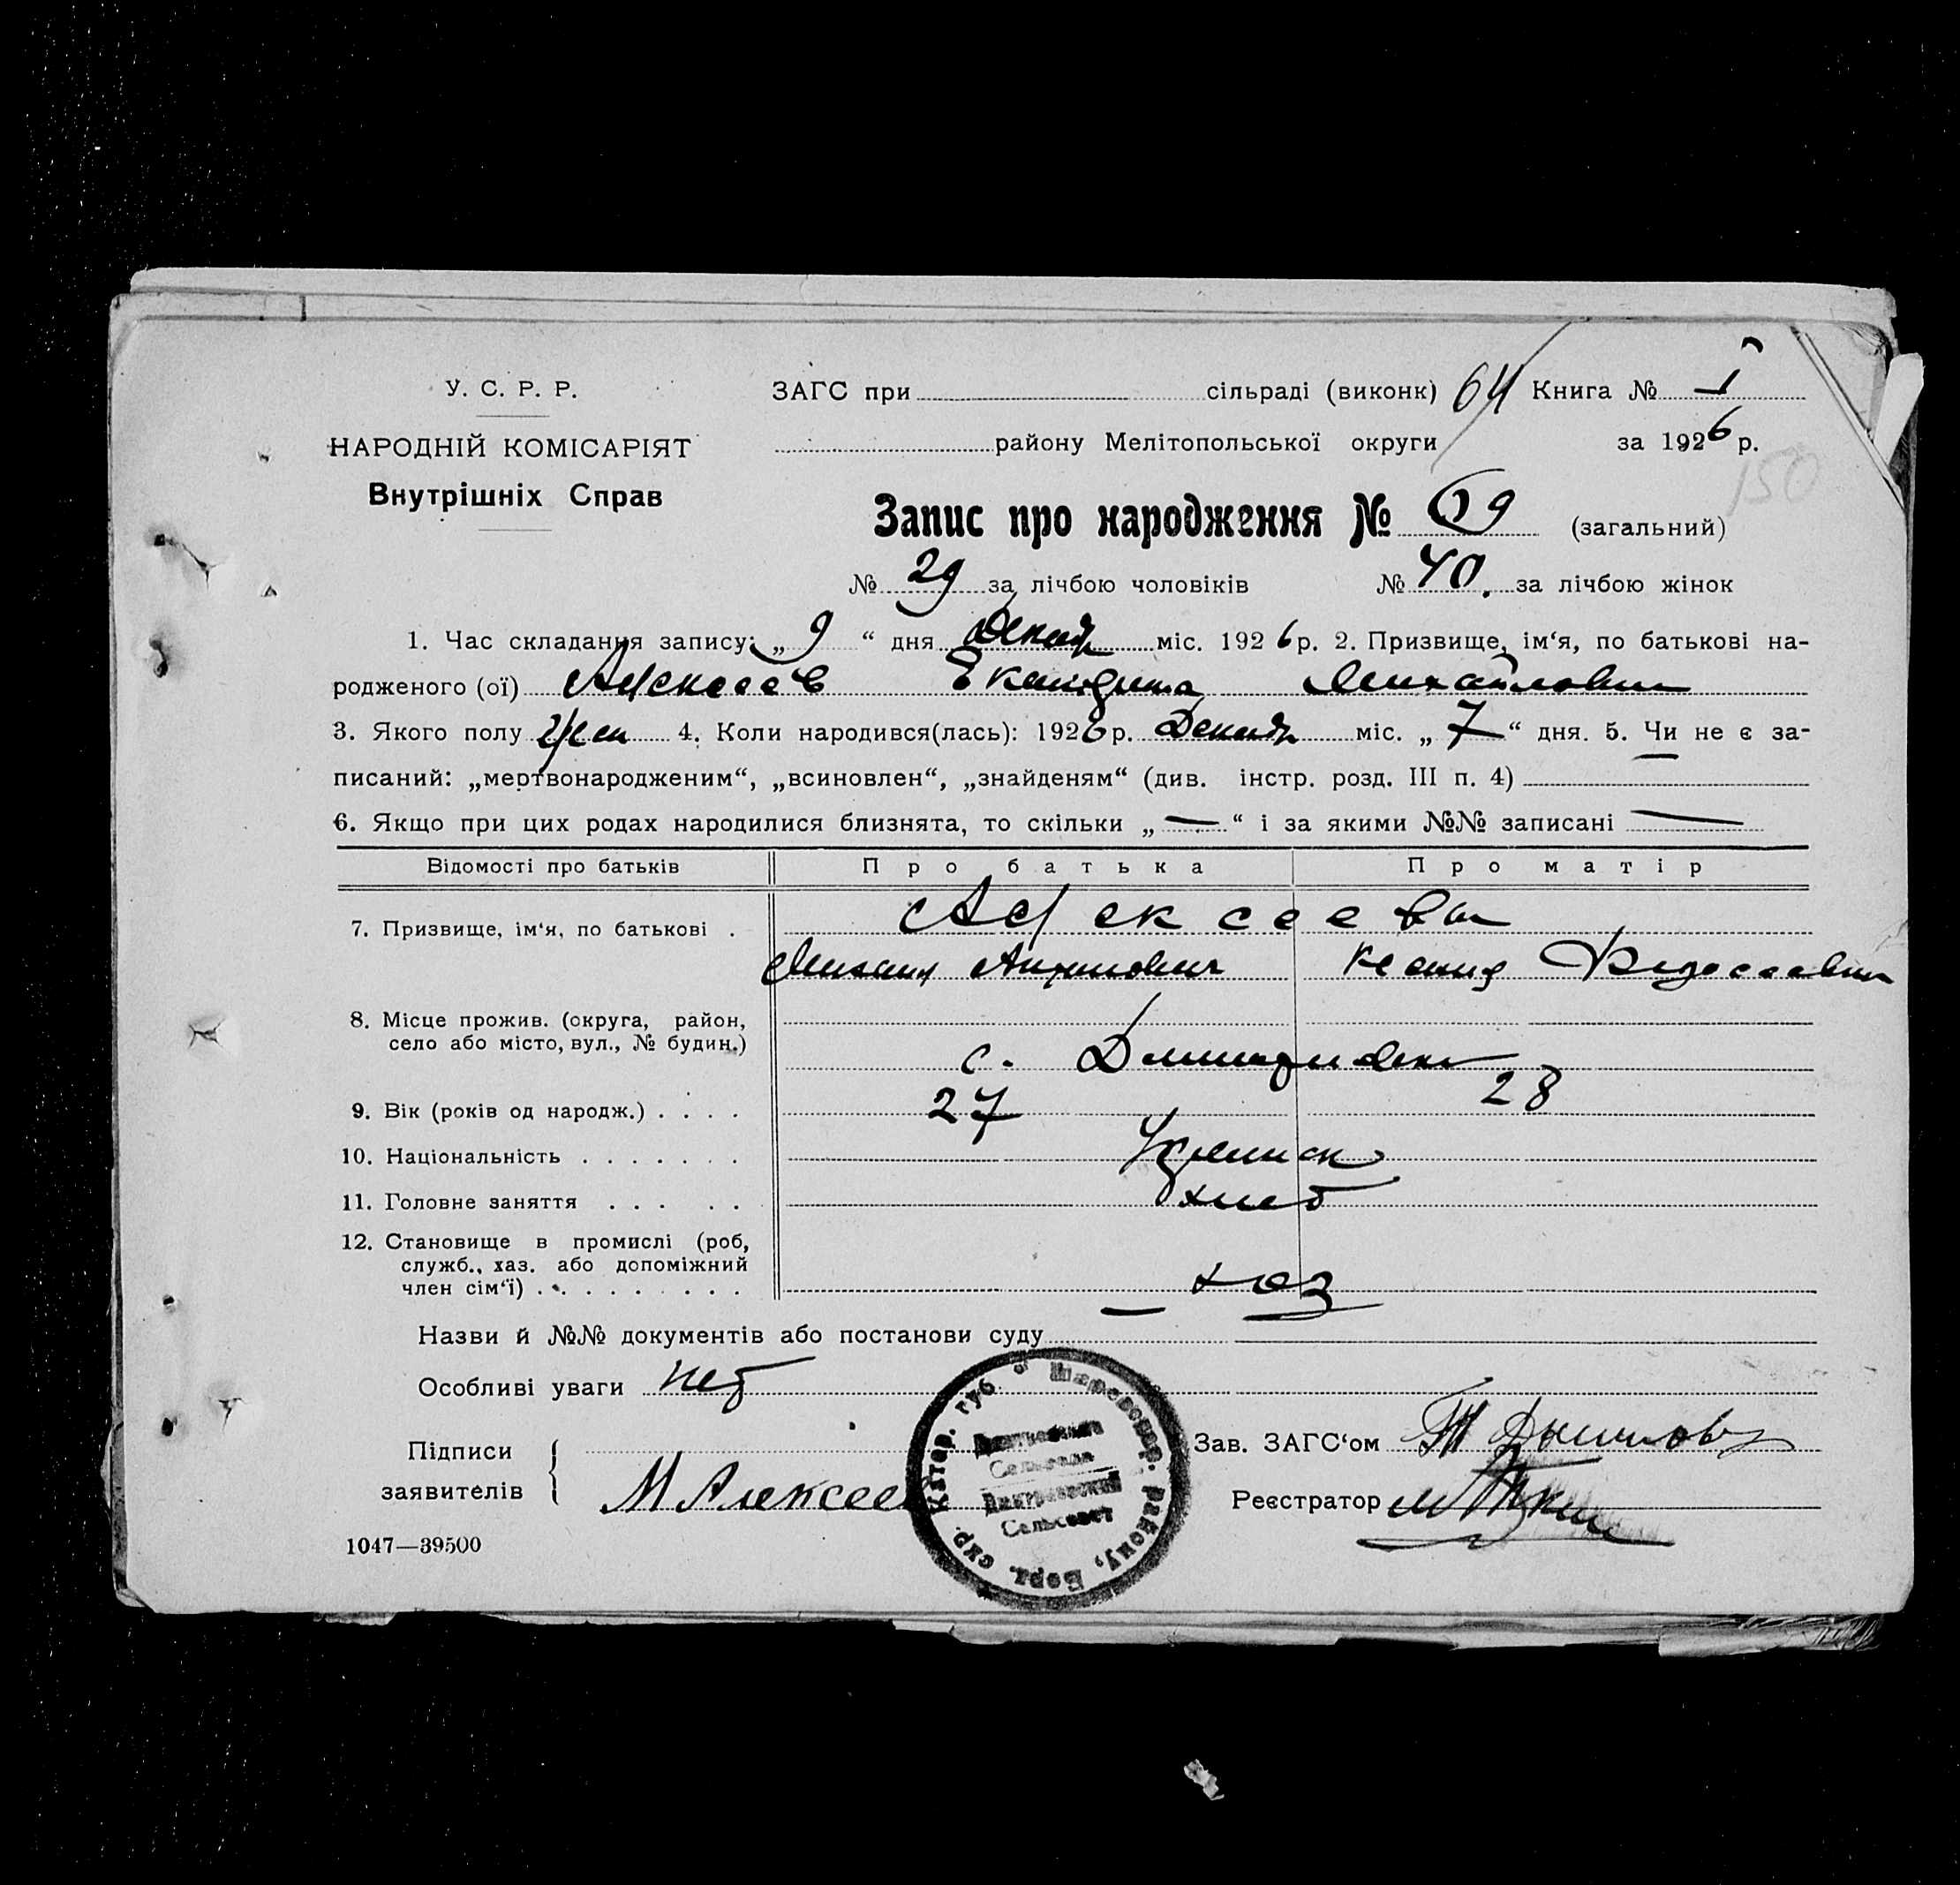 У. С. Р. Р.
ЗАГС при сільраді (виконк) 64 Книга № I
НАРОДНІЙ КОМІСАРІЯТ
району Мелітопольської округи за 1926 р.
Внутрішніх Справ
150
Запис про народження № 69 (загальний)
№ 29 за лічбою чоловіків № 40. за лічбою жінок
1. Час складання запису: „ 9 “ дня Декабр міс. 1926 р. 2. Призвище, ім‘я, по батькові на-
родженого (ої) Алексеев Екатерина Михайловна
3. Якого полу жен 4. Коли народився(лась): 1926 р. Декабр міс. „ 7 “ дня. 5. Чи не є за-
писаний: „мертвонародженим“, „всиновлен“, „знайденям“ (див. інстр. розд. III п. 4)
6. Якщо при цих родах народилися близнята, то скільки „ — “ і за якими №№ записані —
Відомості про батьків Про батька Про матір
7. Призвище, ім‘я, по батькові .
Алексеевы
Михаил Ксения
8. Місце прожив. (округа, район,
село або місто, вул., № будин.)
с.
9. Вік (років од народж.) . . . . 27 28
10. Національність . . . . . . .
11. Головне заняття . . . . . хлеб
12. Становище в промислі (роб,
служб., хаз. або допоміжний
член сім‘ї) . . . . . . . . . хоз
Назви й №№ документів або постанови суду —
Особливі уваги нет
Підписи
заявителів
М Алексеев
Зав. ЗАГС‘ом
Реєстратор
Катер. губ. района, Берд. окр.
Сельрада
Дмитриевский
Сельсовет
1047—39500